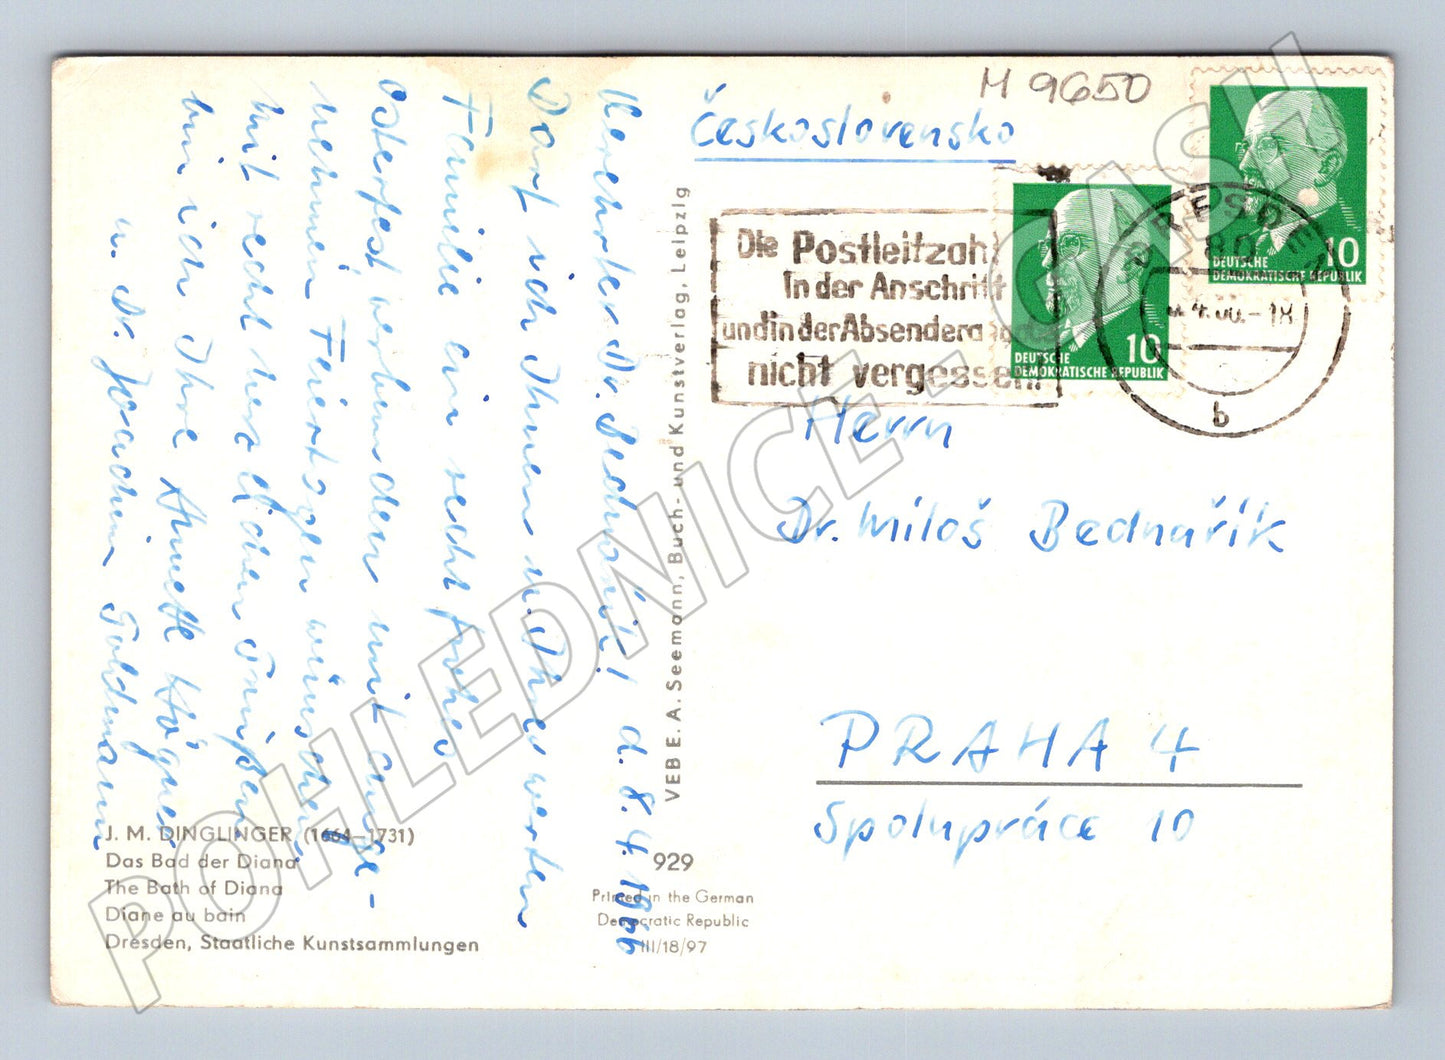 M 9650
Československo
Die Postleitzahl
in der Anschrift
und in der Absenderangabe
nicht vergessen!
DRESDEN
80
4.66.-18
b
10
DEUTSCHE
DEMOKRATISCHE REPUBLIK
10
DEUTSCHE
DEMOKRATISCHE REPUBLIK
Herrn
Dr. Miloš Bednařík
PRAHA 4
Spolupráce 10
d. 8.4.1966
Verehrter Dr. Bednařík!
Darf ich Ihnen u. Ihrer werten
Familie ein recht frohes
Osterfest verbunden mit ange-
nehmen Feiertagen wünschen
Mit recht herzlichen Grüßen
bin ich Ihre Annett Högner
u. Dr. Joachim Goldmann
VEB E. A. Seemann, Buch- und Kunstverlag, Leipzig
J. M. DINGLINGER (1664–1731)
Das Bad der Diana
The Bath of Diana
Diane au bain
Dresden, Staatliche Kunstsammlungen
929
Printed in the German
Democratic Republic
III/18/97
POHLEDNICE - CASH